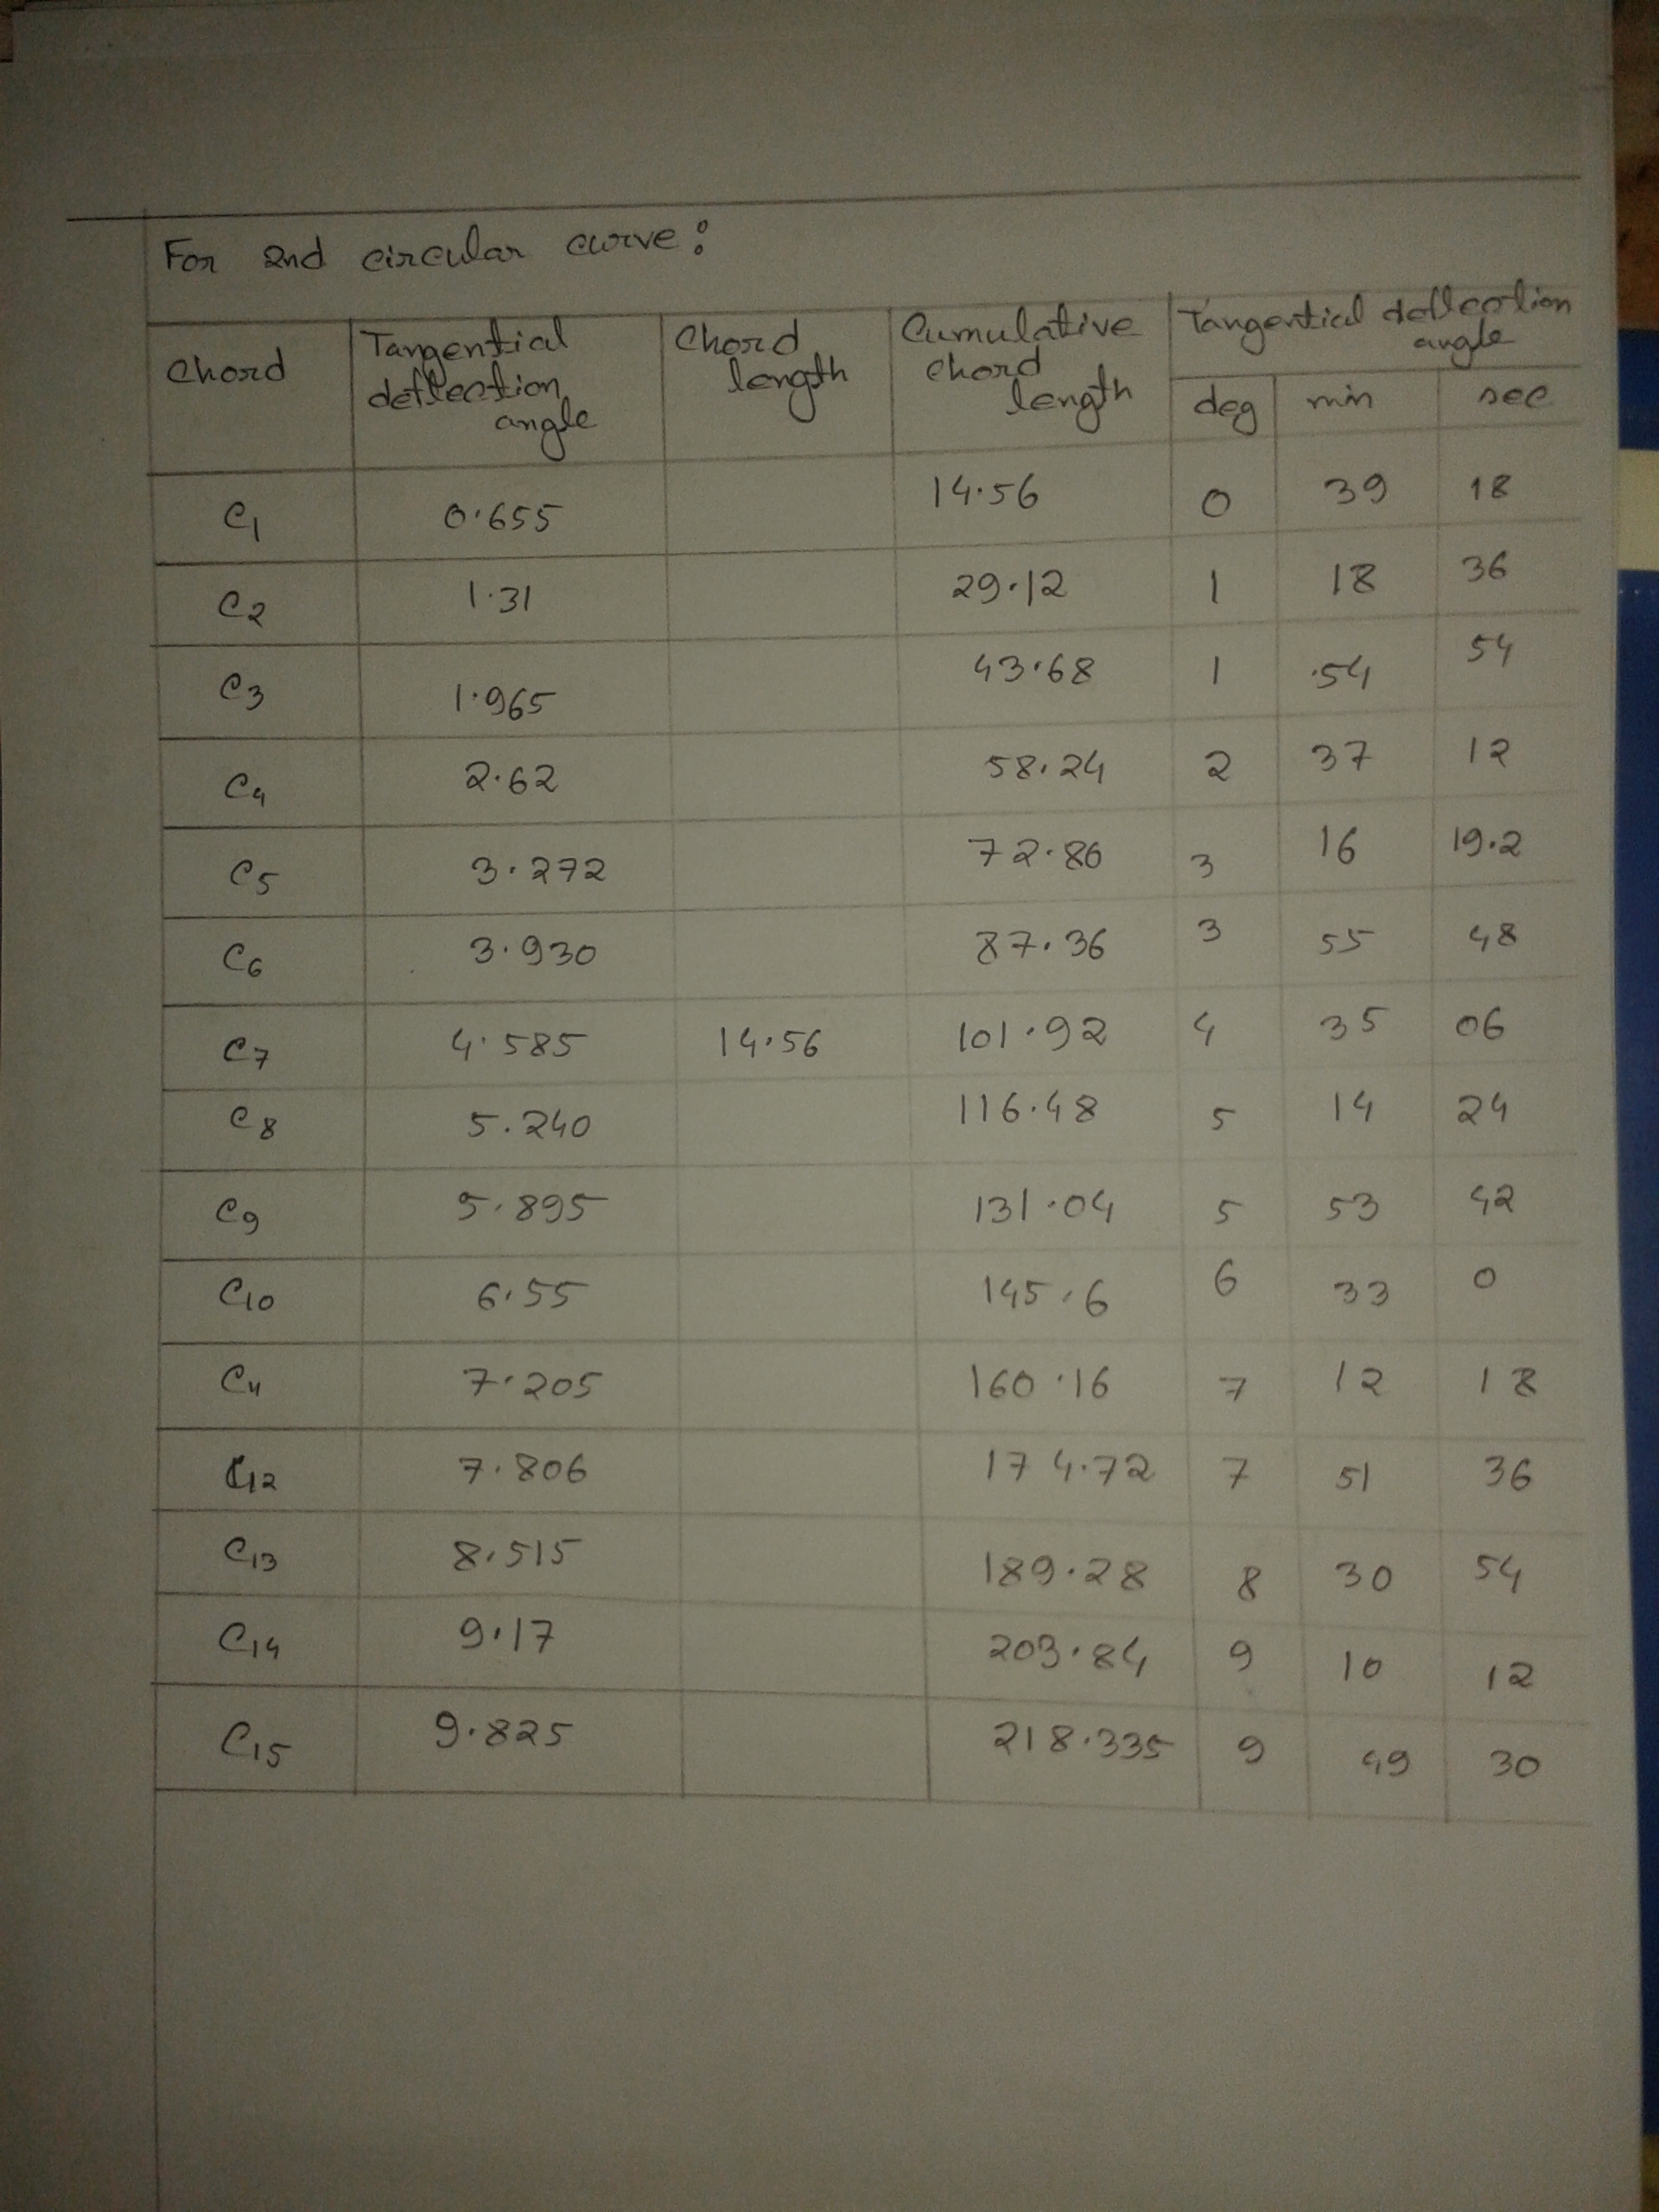 For 2nd circular curve:
Chord | Tangential deflection angle | Chord length | Cumulative chord length | Tangential deflection angle
deg | min | sec
C1 | 0.655 | | 14.56 | 0 | 39 | 18
C2 | 1.31 | | 29.12 | 1 | 18 | 36
C3 | 1.965 | | 43.68 | 1 | 54 | 54
C4 | 2.62 | | 58.24 | 2 | 37 | 12
C5 | 3.272 | | 72.86 | 3 | 16 | 19.2
C6 | 3.930 | | 87.36 | 3 | 55 | 48
C7 | 4.585 | 14.56 | 101.92 | 4 | 35 | 06
C8 | 5.240 | | 116.48 | 5 | 14 | 24
C9 | 5.895 | | 131.04 | 5 | 53 | 42
C10 | 6.55 | | 145.6 | 6 | 33 | 0
C11 | 7.205 | | 160.16 | 7 | 12 | 18
C12 | 7.806 | | 174.72 | 7 | 51 | 36
C13 | 8.515 | | 189.28 | 8 | 30 | 54
C14 | 9.17 | | 203.84 | 9 | 10 | 12
C15 | 9.825 | | 218.335 | 9 | 49 | 30